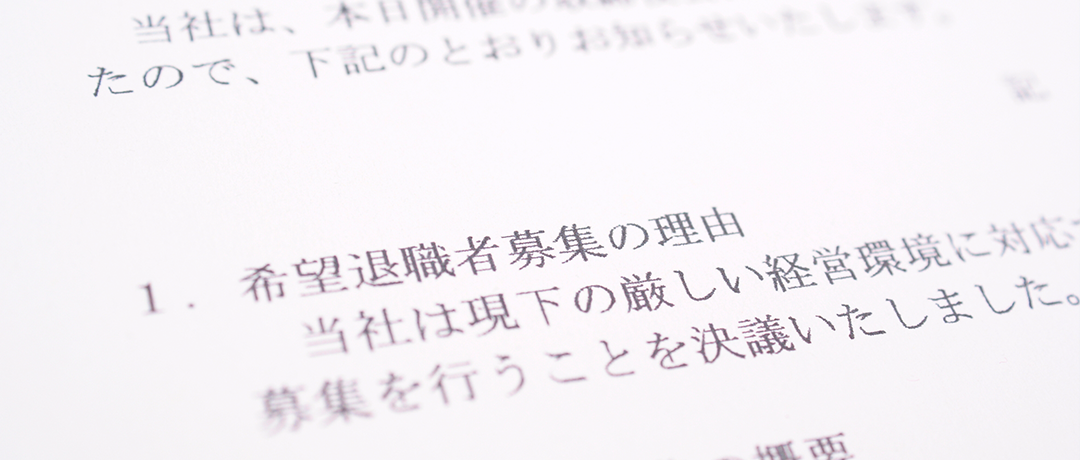 当社は、本日開催の取締役
たので、下記のとおりお知らせいたします。
記
1. 希望退職者募集の理由
当社は現下の厳しい経営環境に対応
募集を行うことを決議いたしました。
の概要